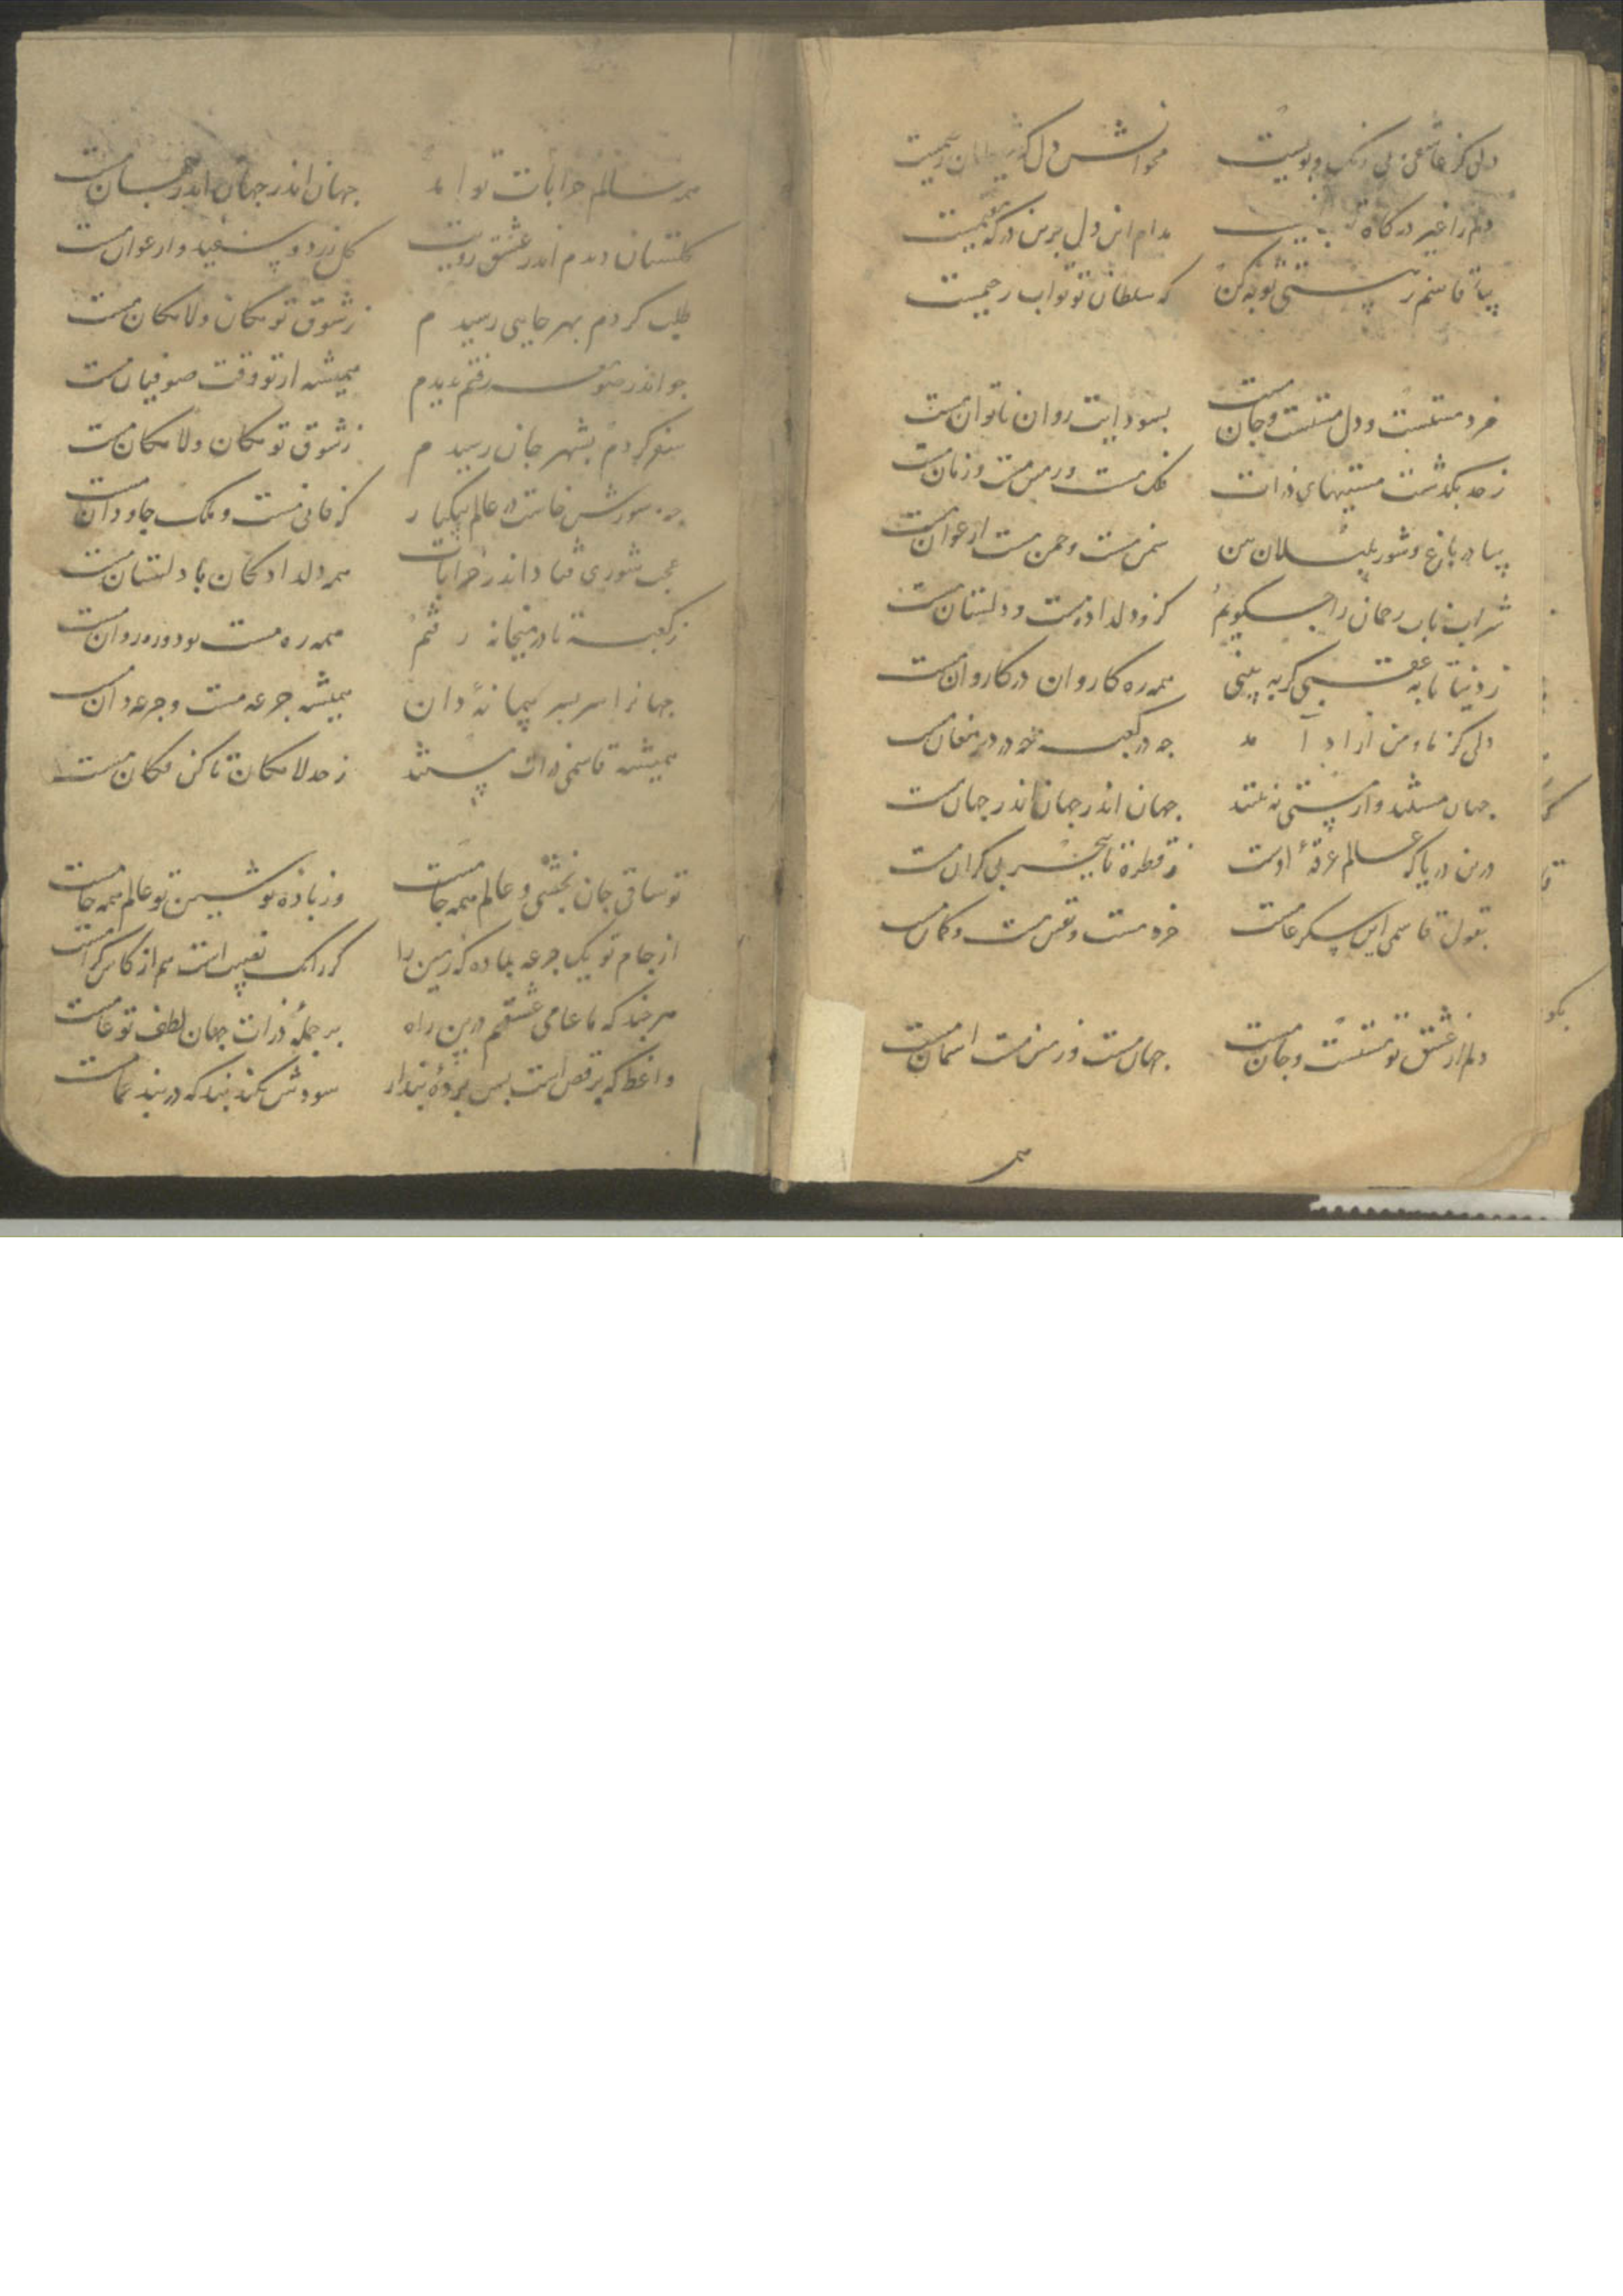 دلی کز عاشقی بی رنک و بویست مخوانش دل که
دلم را غیر درکاه تو مدام این دل برین درکه مقیمست
بیا قاسم ز پستی توبه کن که سلطان تو تواب رحیمست
خرد مستست و دل مستست و جان مست بسودایت روان ناتوان مست
ز حد بکذشت مستیهای ذرات فلک مست و زمین مست و زمان مست
بیا در باغ و شور بلبلان بین سمن مست و چمن مست ارغوان مست
شراب ناب رحمان را چکویم کزو دلداده مست و دلستان مست
ز دنیا تا به عقبی کر به بینی همه ره کاروان در کاروان مست
دلی کز ما و من ازاد آمد چه در کعبه چه در دیر مغان مست
جهان مستند و از مستی نه مستند جهان اندر جهان اندر جهان مست
درین دریا که عالم غرقهٔ اوست ز قطره تا ببحر بی کران مست
بقول قاسمی این سکر عامست خرد مست و نفس مست و کمان مست
دلم از عشق تو مستست و جان مست جهان مست و زمین مست اسمان مست
همه عالم خرابات تو امد جهان اندر جهان اندر جهان مست
کلستان دیدم اندر عشق رویت کل زرد و سفید و ارغوان مست
طلب کردم بهر جایی رسیدم ز شوق تو مکان و لامکان مست
چو اندر صومعه رفتم بدیدم همیشه از تو وقت صوفیان مست
سفر کردم بشهر جان رسیدم ز شوق تو مکان و لامکان مست
چه شورش خاست در عالم بیکبار که فانی مست و ملک جاودان مست
عجب شوری فتاد اندر خرابات همه دلدادکان با دلستان مست
ز کعبه تا در میخانه رفتم همه ره مست بود و ره روان مست
جهانرا سر بسر پیمانهٔ دان همیشه جرعه مست و جرعه دان مست
همیشه قاسمی ذات ز حد لامکان تا کن فکان مست
تو ساقی جان بخشی و عالم همه جامست وز بادهٔ نوشین تو عالم همه جامست
از جام تو یک جرعه بماده که زمین را کر زانک نصیب است هم از کاس کرامست
هرچند که ما عامی عشقیم درین راه بر جملهٔ ذرات جهان لطف تو عامست
واعظ که برقص است پس پردهٔ پندار سودش نکند پند که در بند